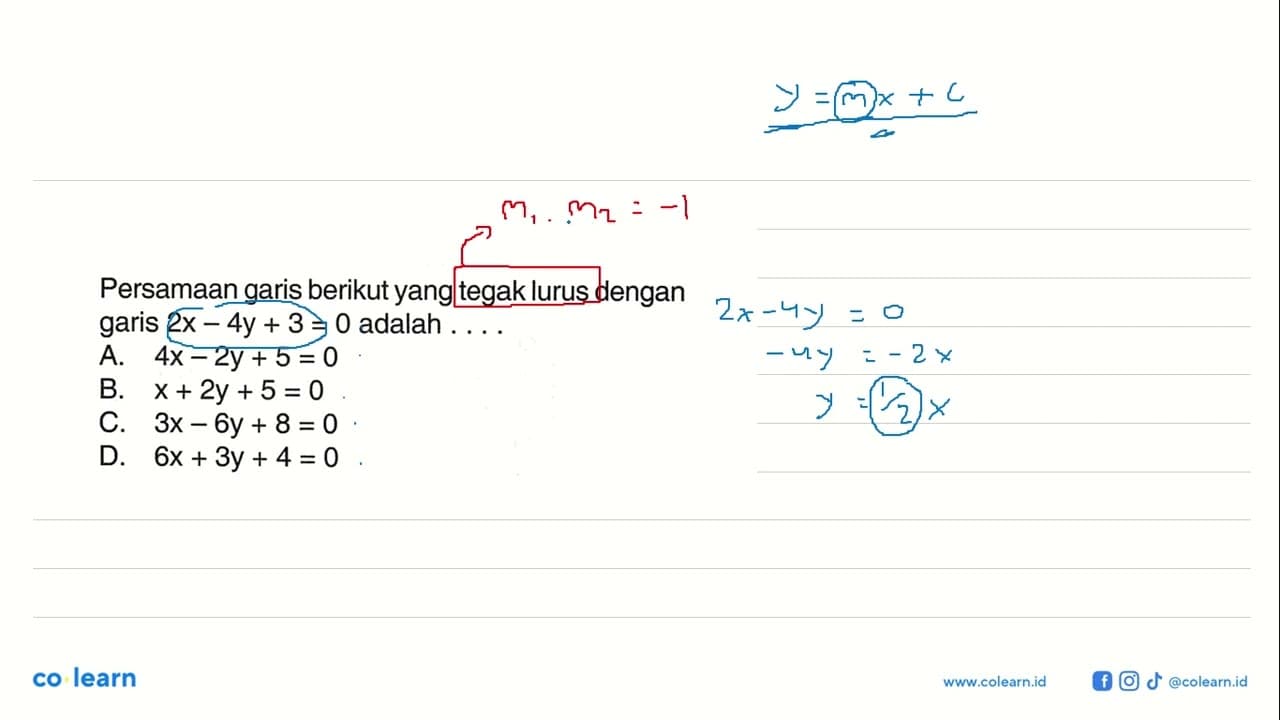 y = mx + c
m1 . m2 = -1
Persamaan garis berikut yang tegak lurus dengan
garis 2x – 4y + 3 = 0 adalah . . . .
A. 4x – 2y + 5 = 0
B. x + 2y + 5 = 0
C. 3x – 6y + 8 = 0
D. 6x + 3y + 4 = 0
2x - 4y = 0
-4y = -2x
y = 1/2 x
co learn
www.colearn.id
@colearn.id